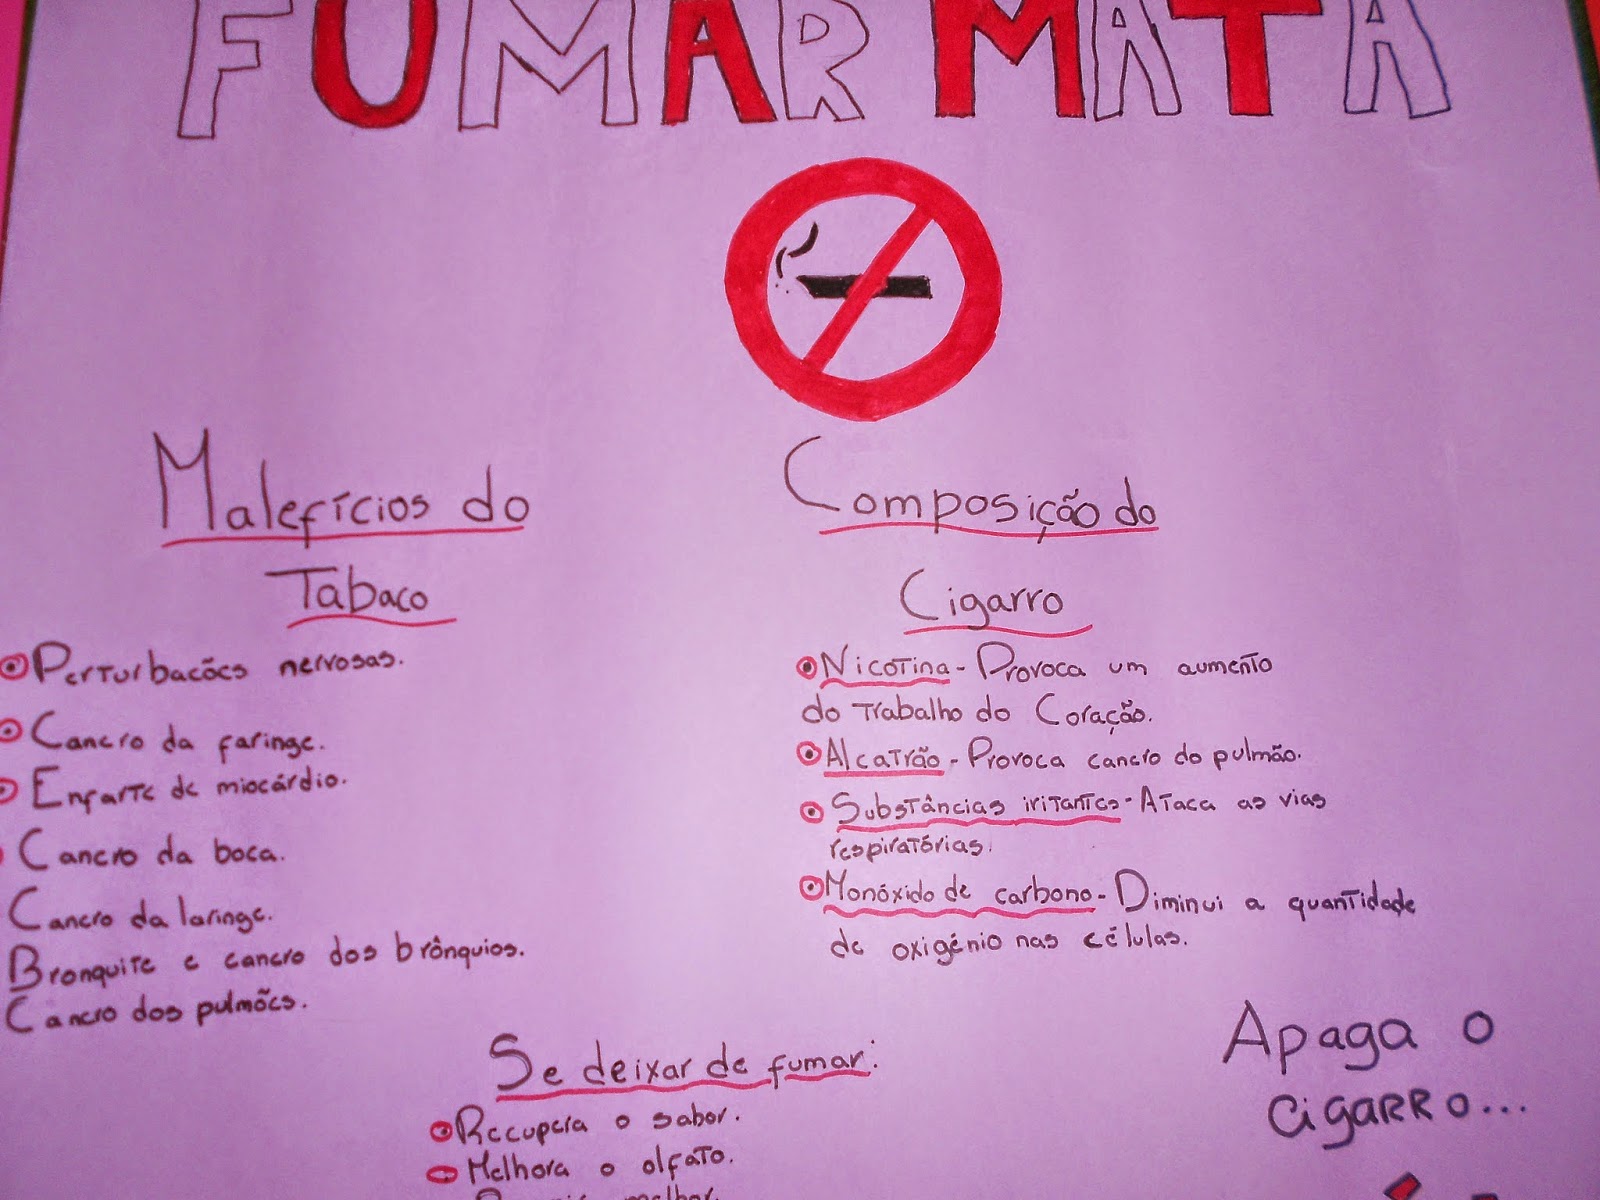 FUMAR MATA
Malefícios do
Tabaco
Perturbacões nervosas.
Cancro da faringe.
Enfarte de miocárdio.
Cancro da boca.
Cancro da laringe.
Bronquite e cancro dos brônquios.
Cancro dos pulmões.
Composição do
Cigarro
Nicotina - Provoca um aumento
do trabalho do Coração.
Alcatrão - Provoca cancro do pulmão.
Substâncias iritantes - Ataca as vias
respiratórias.
Monóxido de carbono - Diminui a quantidade
de oxigénio nas células.
Se deixar de fumar:
Recupera o sabor.
Melhora o olfato.
melhor.
Apaga o
cigarro...